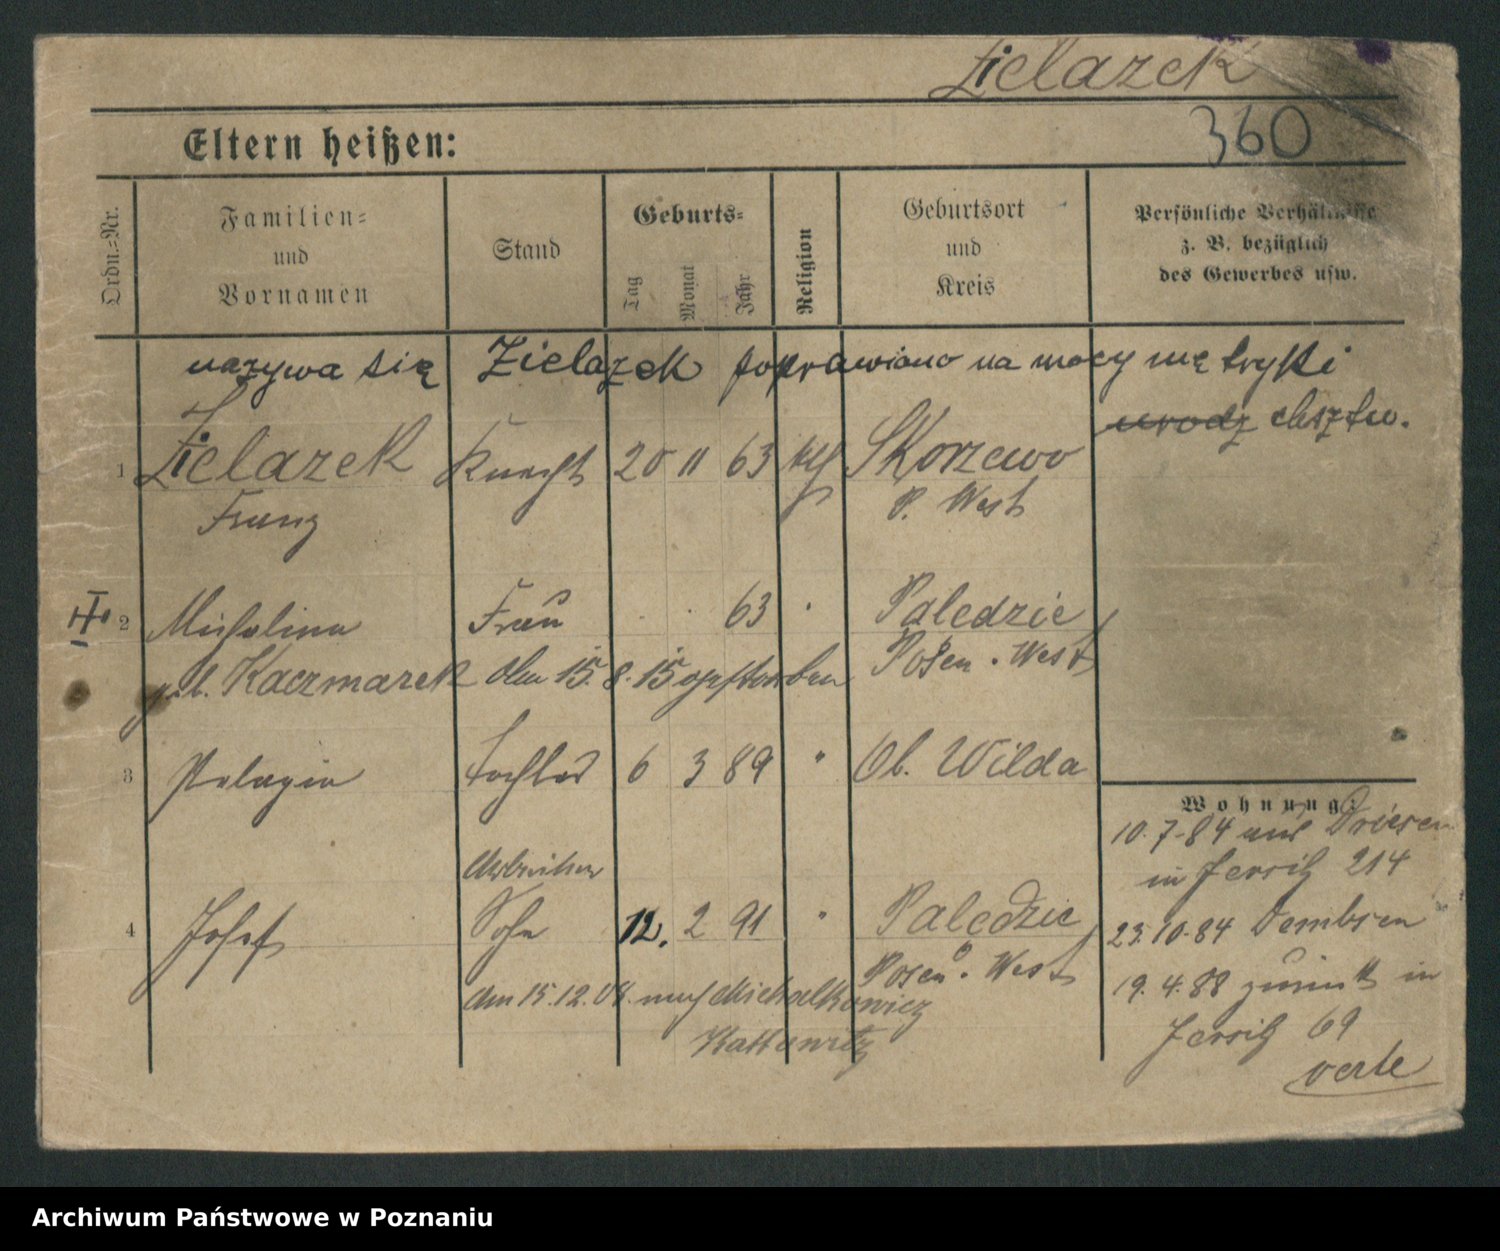 Zielazek
360
Eltern heißen:
Ordn.=Nr.
Familien=
und
Vornamen
Stand
Geburts=
Tag
Monat
Jahr
Religion
Geburtsort
und
Kreis
Persönliche Verhältnisse
z. B. bezüglich
des Gewerbes usw.
nazywa się Zielazek poprawiono na mocy metryki
urodz chrztu.
1 Zielazek Knecht 20 11 63 kth Skorzewo
Franz P. West
2 Michalina Frau 63 Paledzie
geb. Kaczmarek den 15. 8. 15 gestorben Posen. West
3 Pelagia Tochter 6 3 89 " Ob. Wilda
Wohnung:
10.7.84 aus Driesen
in Jersitz 214
Arbeiter
4 Josef Sohn 12. 2 91 " Paledzie
Posen. West
23.10.84 Dembsen
am 15.12.08. nach Michalkowicz
Kattowitz
19.4.88 zurück in
Jersitz 69
verte
Archiwum Państwowe w Poznaniu